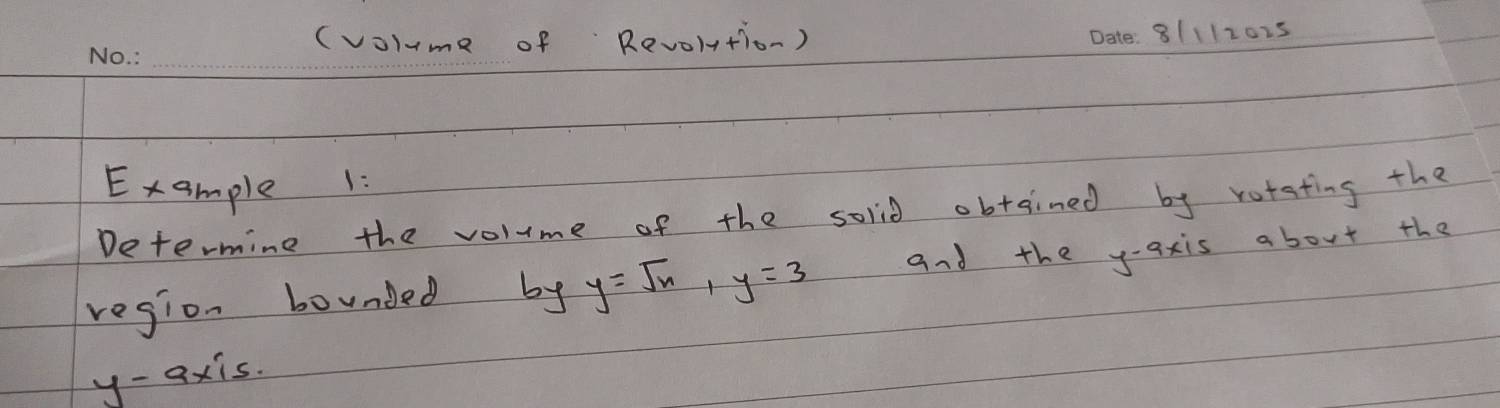 No.: (Volume of Revolution) Date: 8/1/2025
Example 1:
Determine the volume of the solid obtained by rotating the
region bounded by y=√x, y=3 and the y-axis about the
y-axis.